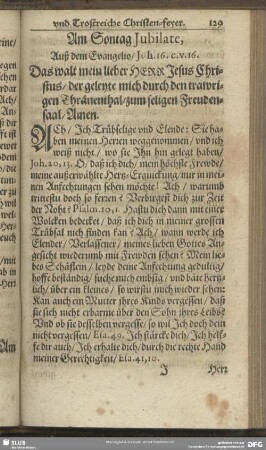 vnd Trostreiche Christen-feyer. 129
Am Sontag Jubilate,
Auß dem Evangelio, Joh. 16. c. v. 16.
Das walt mein lieber HERR Jesus Chri-
stus/ der geleyte mich durch den trawri-
gen Thränenthal/ zum seligen Freuden-
saal/ Amen.
ACh/ Ich Trübselige vnd Elende: Sie ha-
ben meinen Herren weggenommen/ vnd ich
weiß nicht/ wo sie Ihn hin gelegt haben/
Joh. 20. 13. O daß ich dich/ mein höchste Frewde/
meine außerwählte Hertz-Erquickung/ nur in mei-
nen Anfechtungen sehen möchte! Ach/ warumb
trittestu doch so ferren? Verbirgest dich zur Zeit
der Noht? Psalm. 10, 1. Hastu dich dann mit einer
Wolcken bedecket/ daß ich dich in meiner grossen
Trübsal nich finden kan? Ach/ wann werde ich
Elender/ Verlassener/ meines lieben Gottes An-
gesicht wiederumb mit Frewden sehen? Mein lie-
bes Schäflein/ leyde deine Anfechtung gedultig/
hoffe beständig/ suche mich embsig/ vnd bäte hertz-
lich/ über ein kleines/ so wirstu mich wieder sehen:
Kan auch ein Mutter ihres Kinds vergessen/ daß
sie sich nicht erbarme über den Sohn ihres Leibs?
Vnd ob sie desselben vergesse/ so wil Ich doch dein
nicht vergessen/ Esa. 49. Ich stärcke dich/ Ich helf-
fe dir auch/ Ich erhalte dich/ durch die rechte Hand
meiner Gerechtigkeit/ Esa. 41, 10.
J Herr
SLUB
DFG